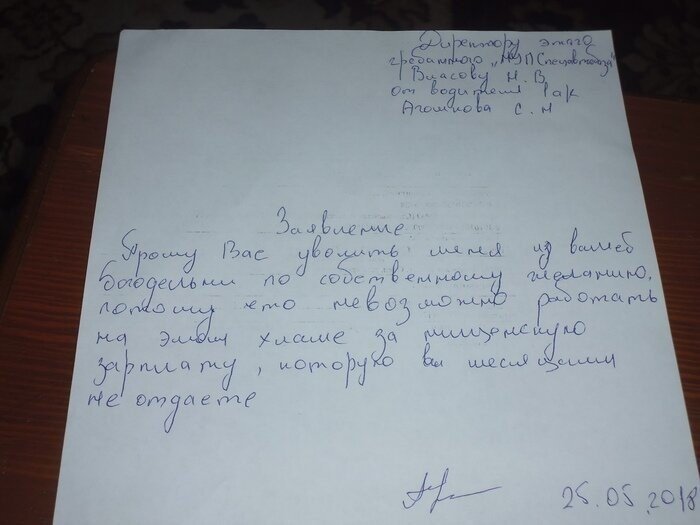 Директору этаго
гребанного „МУПСпецавтобаза"
Власову Н. В.
от водителя 1а/к
Агошкова С. Н
Заявление
Прошу Вас уволить меня из вашей
богодельни по собственному желанию,
потому что невозможно работать
на этом хламе за нищенскую
зарплату, которую вы месяцами
не отдаете
25.05.2018